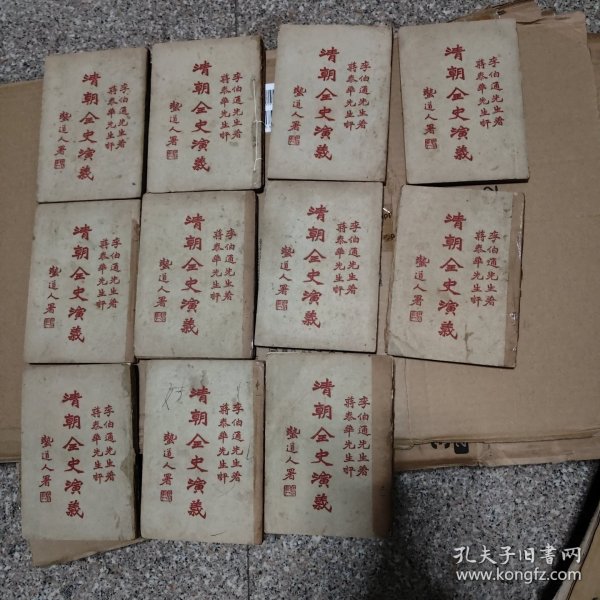 李伯通先生著
蔣泰華先生評
清朝全史演義
李伯通先生著
蔣泰華先生評
清朝全史演義
李伯通先生著
蔣泰華先生評
清朝全史演義
李伯通先生著
蔣泰華先生評
清朝全史演義
李伯通先生著
蔣泰華先生評
清朝全史演義
李伯通先生著
蔣泰華先生評
清朝全史演義
李伯通先生著
蔣泰華先生評
清朝全史演義
李伯通先生著
蔣泰華先生評
清朝全史演義
李伯通先生著
蔣泰華先生評
清朝全史演義
李伯通先生著
蔣泰華先生評
清朝全史演義
李伯通先生著
蔣泰華先生評
清朝全史演義
孔夫子旧书网
www.kongfz.com